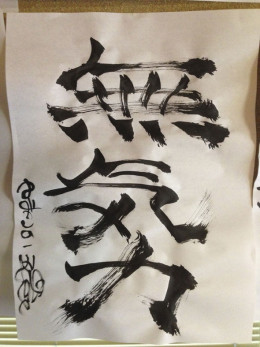 無気力